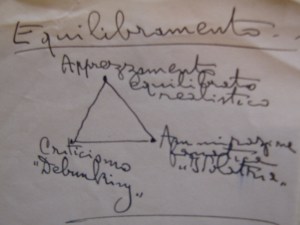 Equilibramento...
Apprezzamento
equilibrato
realistico
Criticismo
"Debunking"
Ammirazione
fanatica
"Idolatria"